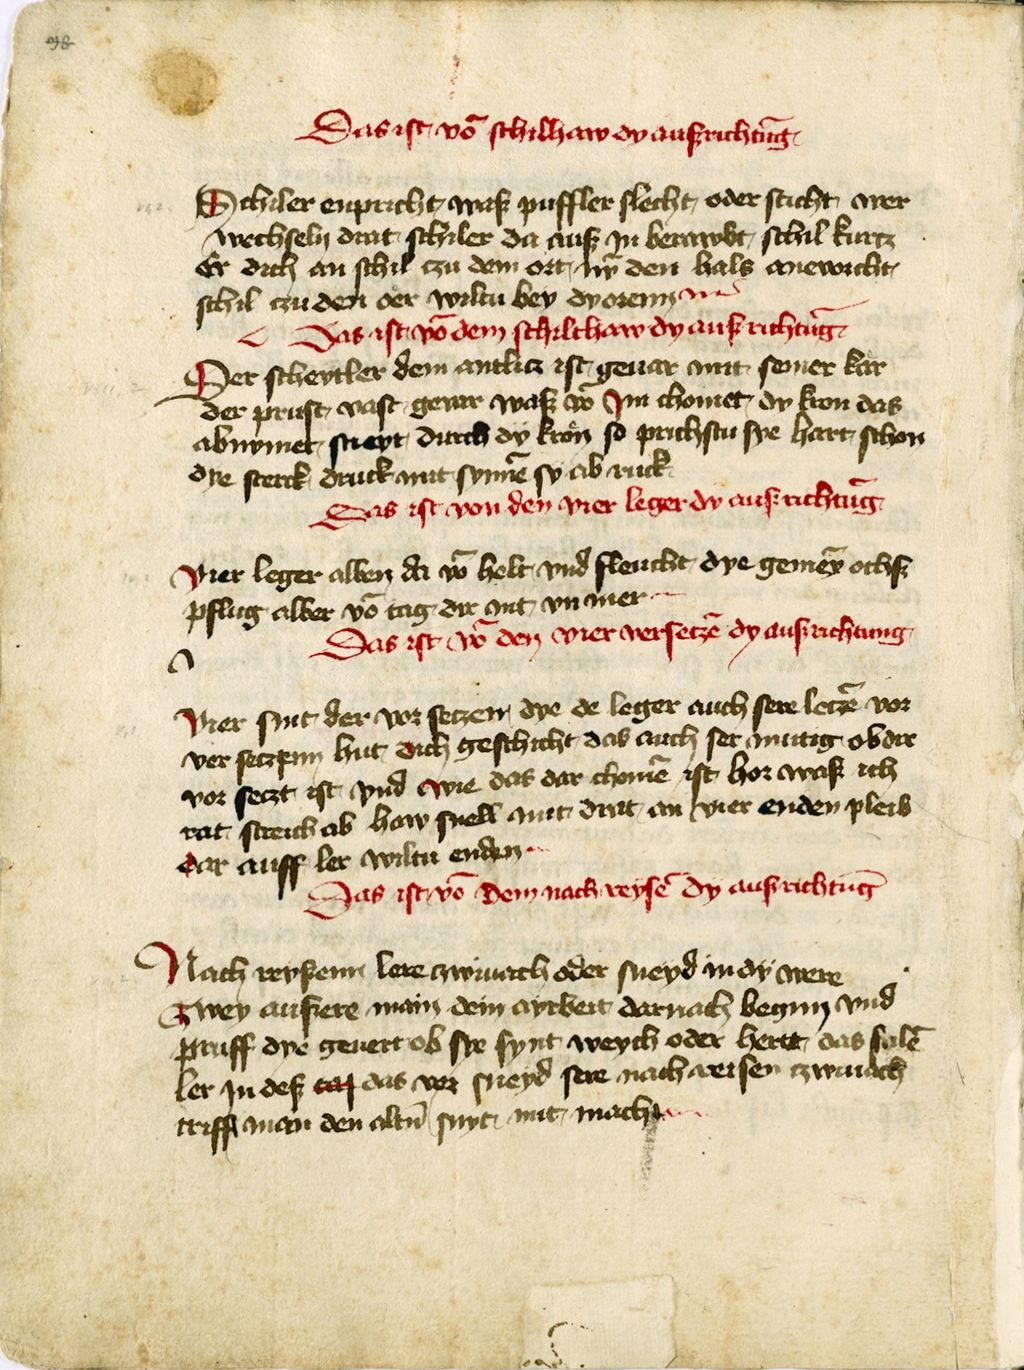 98
Das ist vō schilhaw dy außrichtūg
Schiler enpricht waß puffler slecht oder sticht wer
wechseln drat schiler da auß in berawbt schil kurtz
Er dich an schil tzu dem ort nÿ den hals anewicht
schil tzu den ober wiltu bey dy orenn
Das ist vō dem schilthaw dy außrichtūg
Der scheytler dem antlitz ist geuar mit seiner kar
der prust vast gewar waß vō Im chomet dy kron das
abnymet sneyt durch dy kron so prichstu sye hart schon
dye sterck druck mit synnē sy ab ruck
Das ist von den vier leger dy außrichtūg
Vier leger allen da vō helt vnd fleucht dye gemeȳ ochß
pflug alber vō tag dir nit vnmer
Das ist vō den vier versetzē dy außrichtung
Vier sint der vor setzen dye de leger auch sere letzē vor
ver setzenn hut dich geschicht das auch ser mutig ob dir
vor setzt ist vnd wie das dar chomē ist hor waß ich
rat streich ab haw snell mit drat an vier enden pleib
dar auff ler wiltu enden
Das ist vō Dem nach reysē dy außrichtūg
Nach reyßenn lere tzwiuach oder sneyd in dy were
Tzwey außere main dein aytbeit darnach beginn vnd
pruff dye geuert ob sye synt weych oder hertt das fulē
ler in deß das vor sneyd sere nach reisen tzwiuach
triff man den altn̄ snyt mit macht